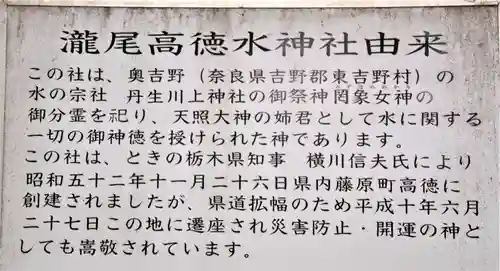 瀧尾高徳水神社由来
この社は、奥吉野（奈良県吉野郡東吉野村）の
水の宗社　丹生川上神社の御祭神罔象女神の
御分霊を祀り、天照大神の姉君として水に関する
一切の御神徳を授けられた神であります。
この社は、ときの栃木県知事　横川信夫氏により
昭和五十二年十一月二十六日県内藤原町高徳に
創建されましたが、県道拡幅のため平成十年六月
二十七日この地に遷座され災害防止・開運の神と
しても嵩敬されています。